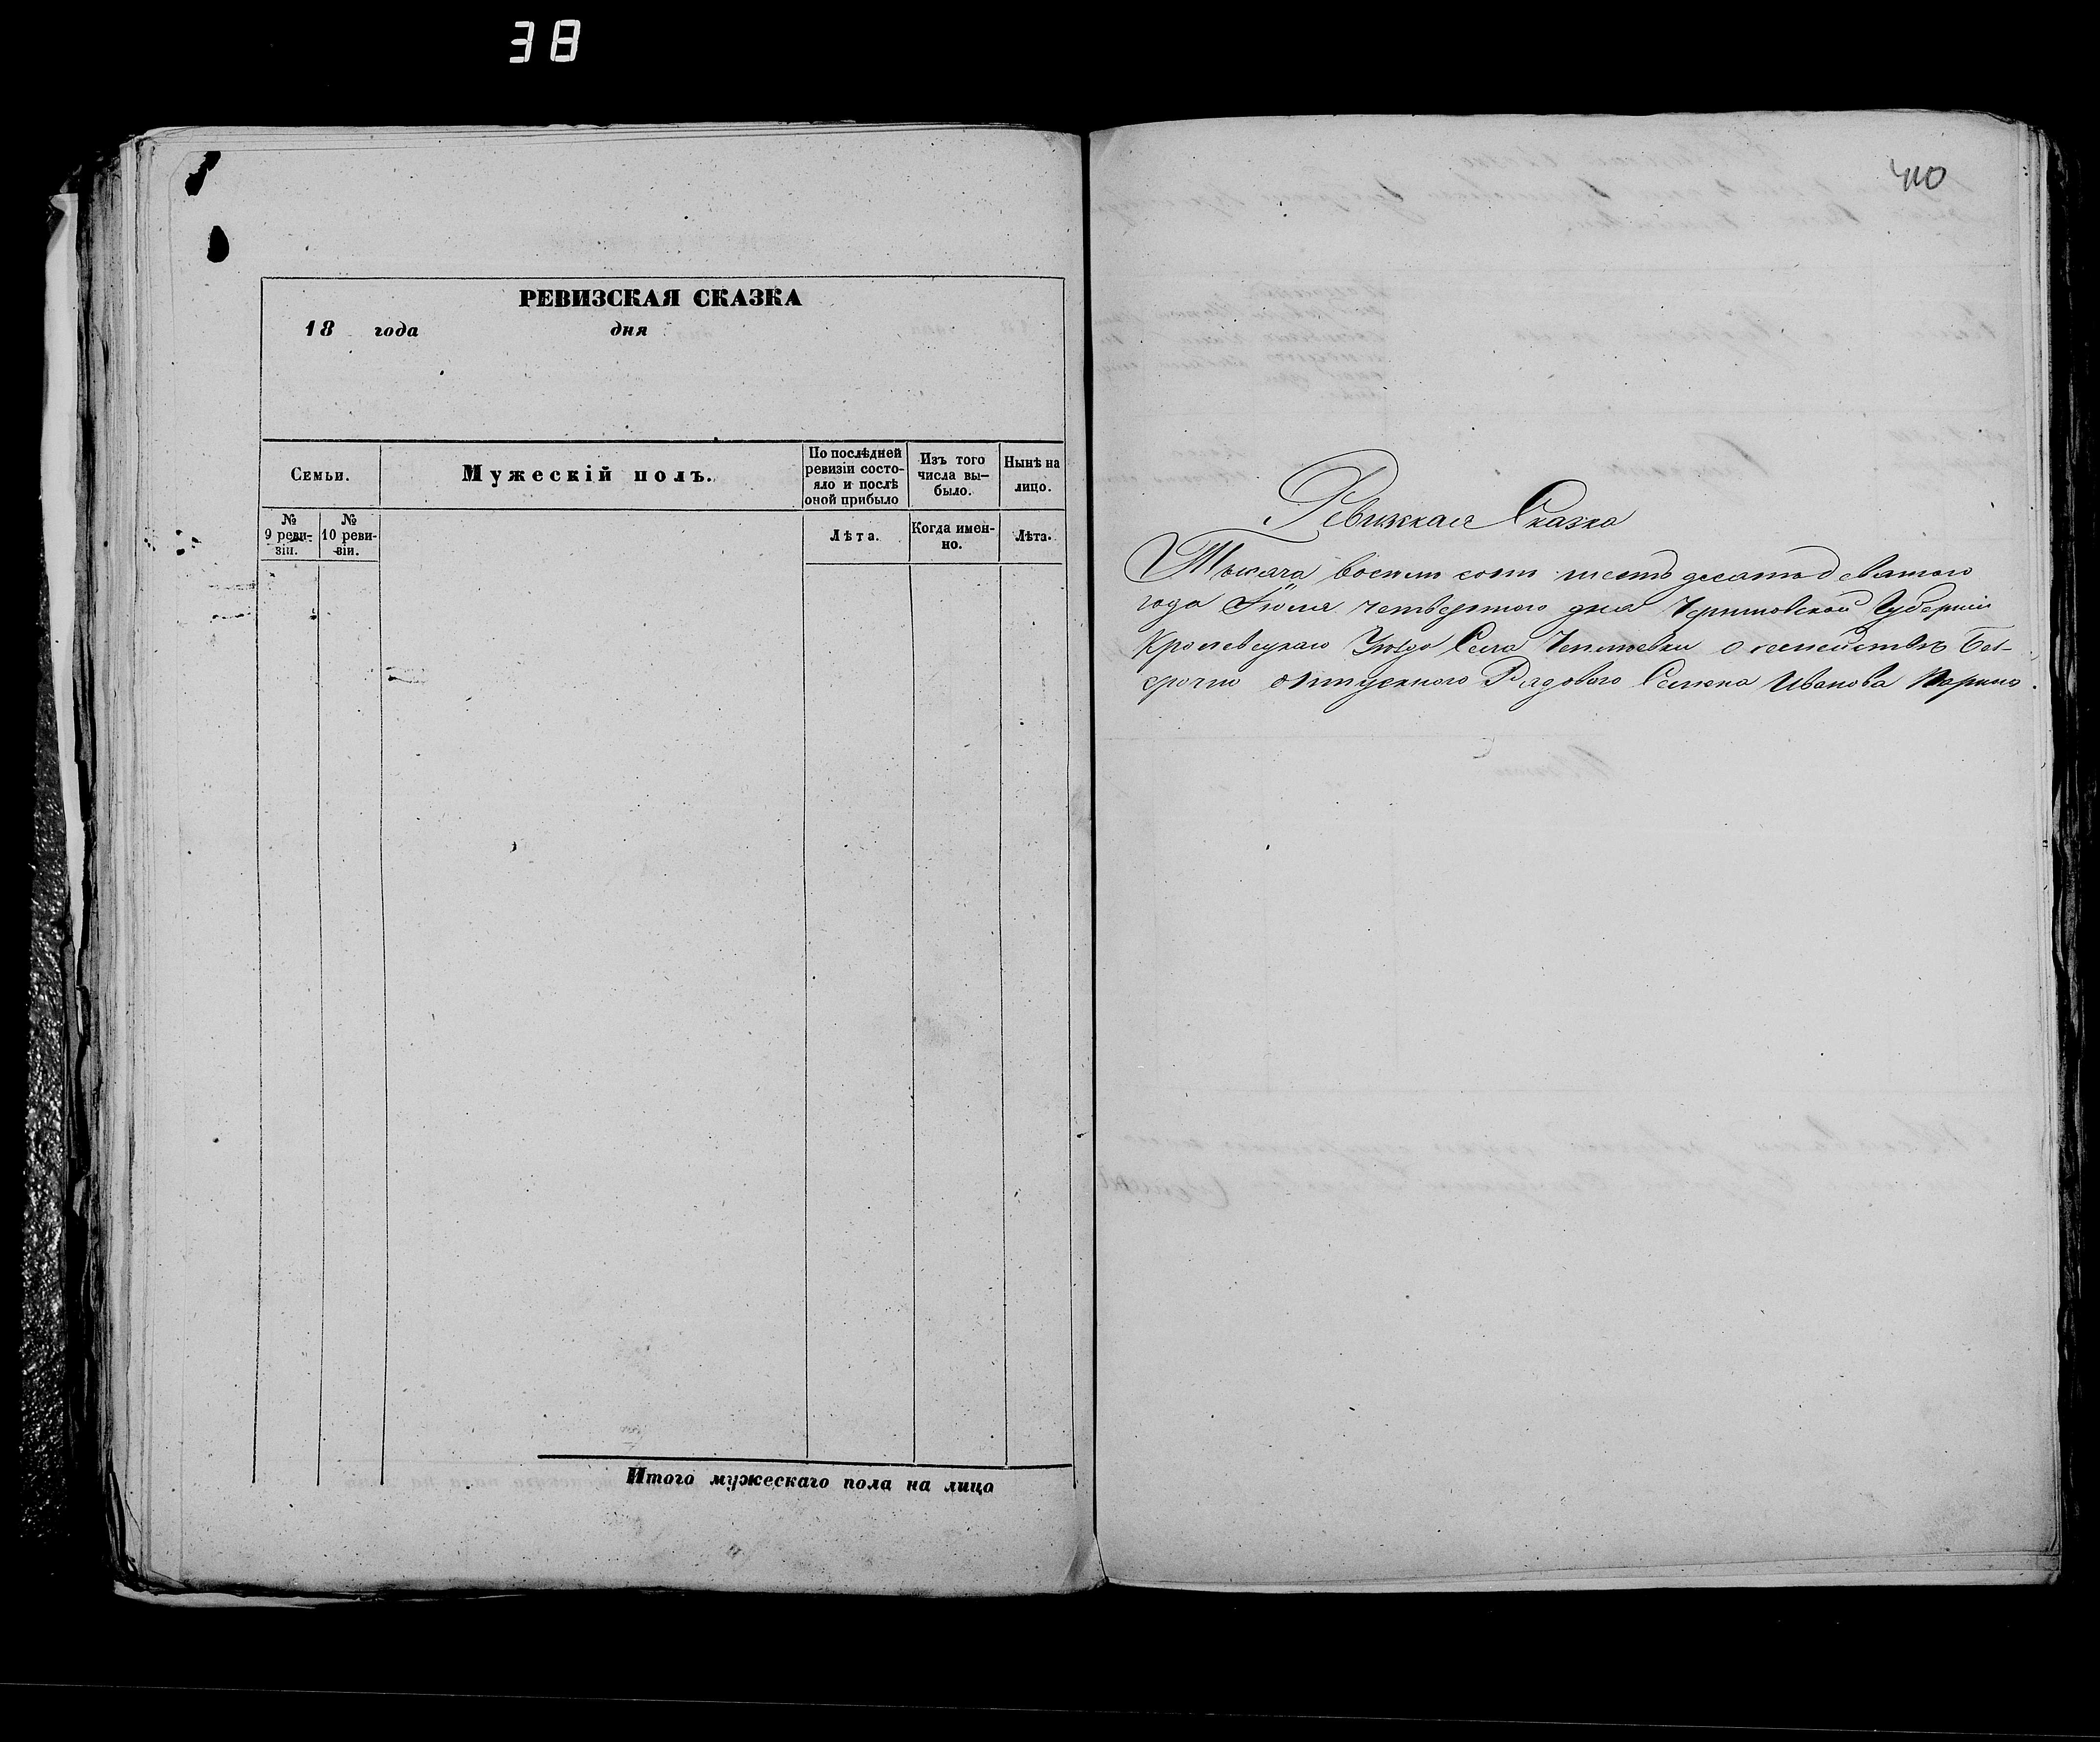 38
РЕВИЗСКАЯ СКАЗКА
18 года дня
Семьи.
Мужескій полъ.
По послѣдней
ревизіи состо-
яло и послѣ
оной прибыло
Изъ того
числа вы-
было.
Нынѣ на
лицо.
№
9 реви-
зіи.
№
10 реви-
зіи.
Лѣта.
Когда имен-
но.
Лѣта.
Итого мужескаго пола на лицо
Ревизская Сказка
Тысяча восемь сотъ шестьдесятъ девятаго
года Іюля четвертого дня Черниговской Губерніи
Кролевецкаго Уѣзда Села о семействѣ Без-
срочно отпускного Рядового Семена Иванова